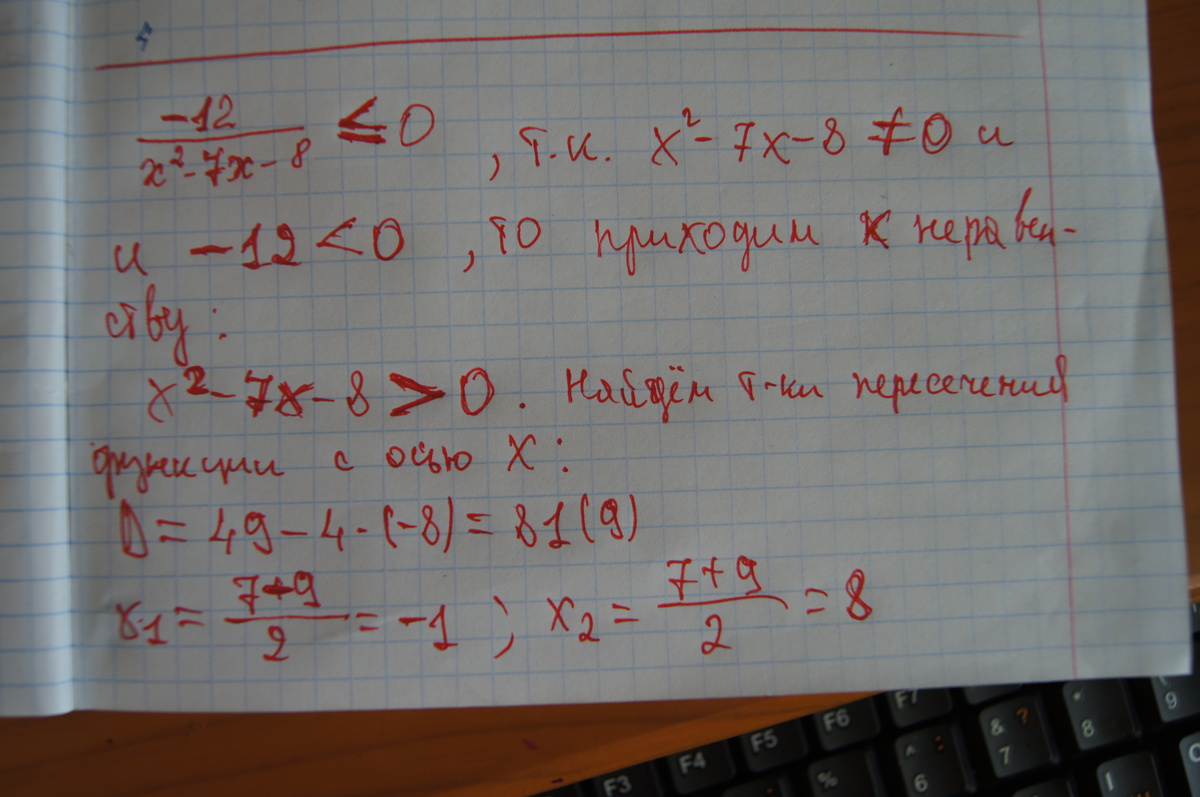 -12 / x² - 7x - 8 ≤ 0 , т.к. x² - 7x - 8 ≠ 0 и
и -12 < 0 , то приходим к неравен-
ству :
x² - 7x - 8 > 0 . Найдём т-ки пересечения
функции с осью X :
D = 49 - 4 · (-8) = 81 (9)
x₁ = 7-9 / 2 = -1 ; x₂ = 7+9 / 2 = 8
F3 F4 F5 F6 F7
% ^ 6 & 7 ? * 8 9